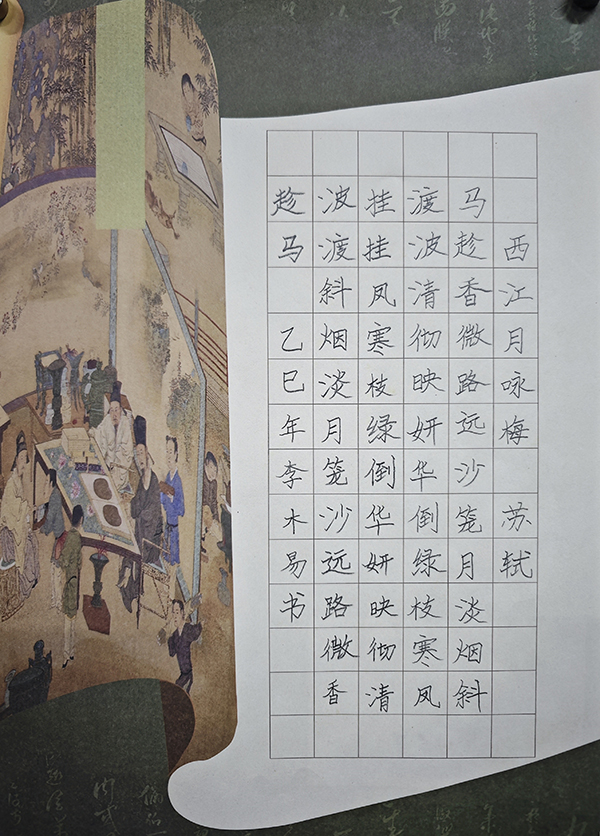 西江月咏梅 苏轼
马趁香微路远沙笼月淡烟斜
渡波清彻映妍华倒绿枝寒凤
挂挂凤寒枝绿倒华妍映彻清
波渡斜烟淡月笼沙远路微香
趁马 乙巳年李木易书